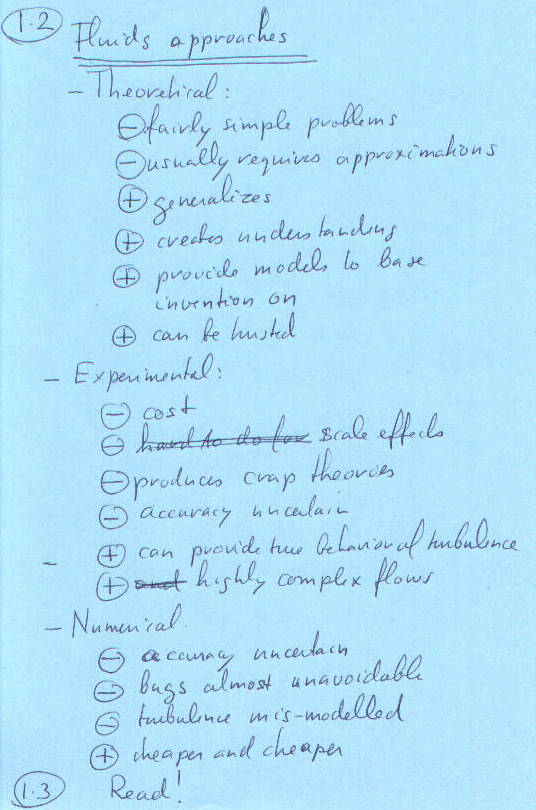 1.2 Fluids approaches
- Theoretical:
⊖ fairly simple problems
⊖ usually requires approximations
⊕ generalizes
⊕ creates understanding
⊕ provide models to base
invention on
⊕ can be trusted
- Experimental:
⊖ cost
⊖ hard to do for scale effects
⊖ produces crap theories
⊖ accuracy uncertain
- ⊕ can provide true behavior of turbulence
⊕ and highly complex flows
- Numerical.
⊖ accuracy uncertain
⊖ bugs almost unavoidable
⊖ turbulence mis-modelled
⊕ cheaper and cheaper
1.3 Read!